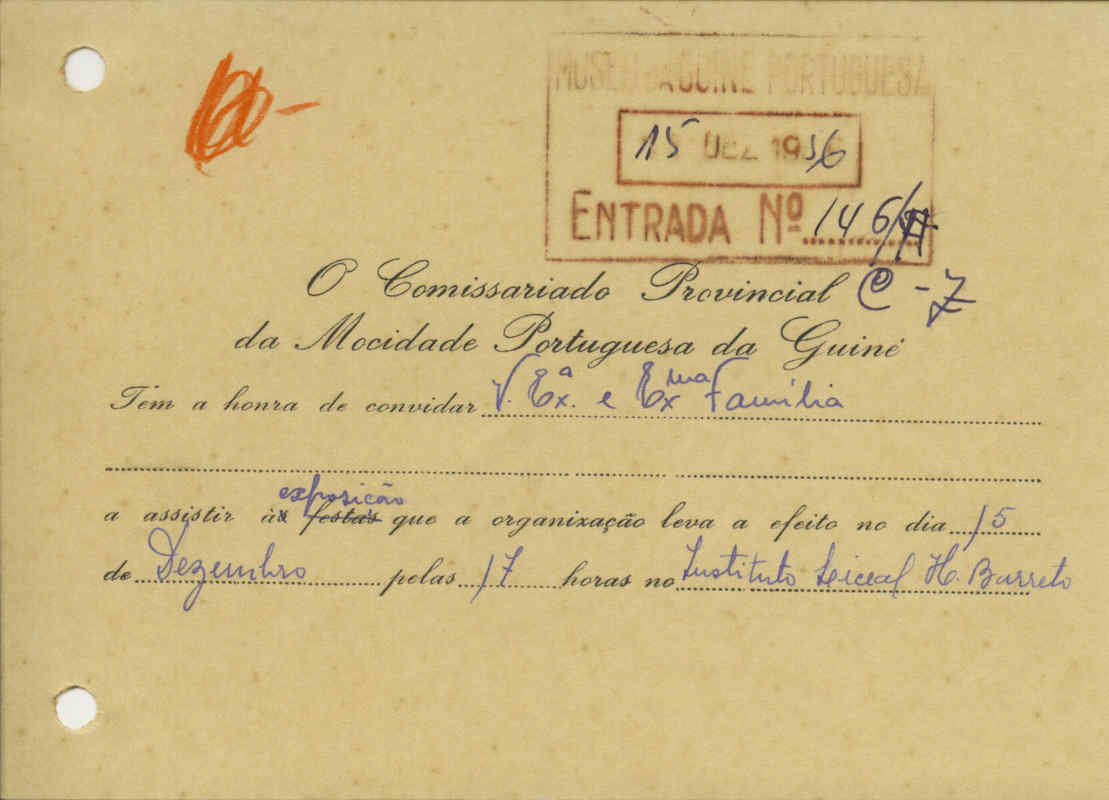 MUSEU DA GUINÉ PORTUGUESA
15 DEZ 1956
ENTRADA Nº 146/
C-7
O Comissariado Provincial
da Mocidade Portuguesa da Guiné
Têm a honra de convidar V. Exª. e Exma Família
exposição
a assistir às festas que a organização leva a efeito no dia 15
de Dezembro pelas 17 horas no Instituto Liceal H. Barreto